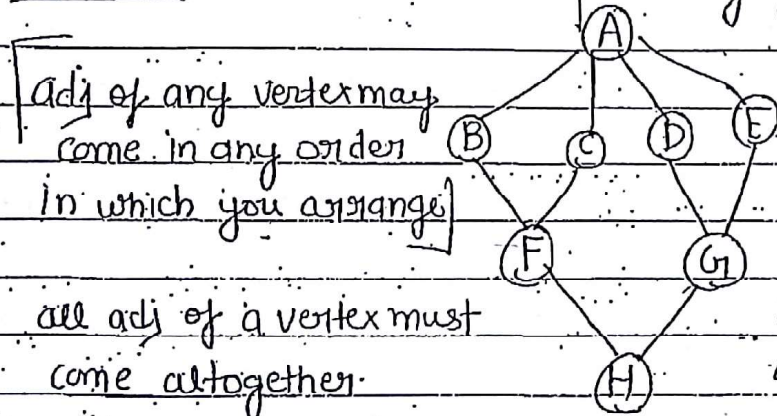 A
[adj of any vertex may
come in any order
in which you arrange]
B C D E
F G
all adj of a vertex must
come altogether.
H